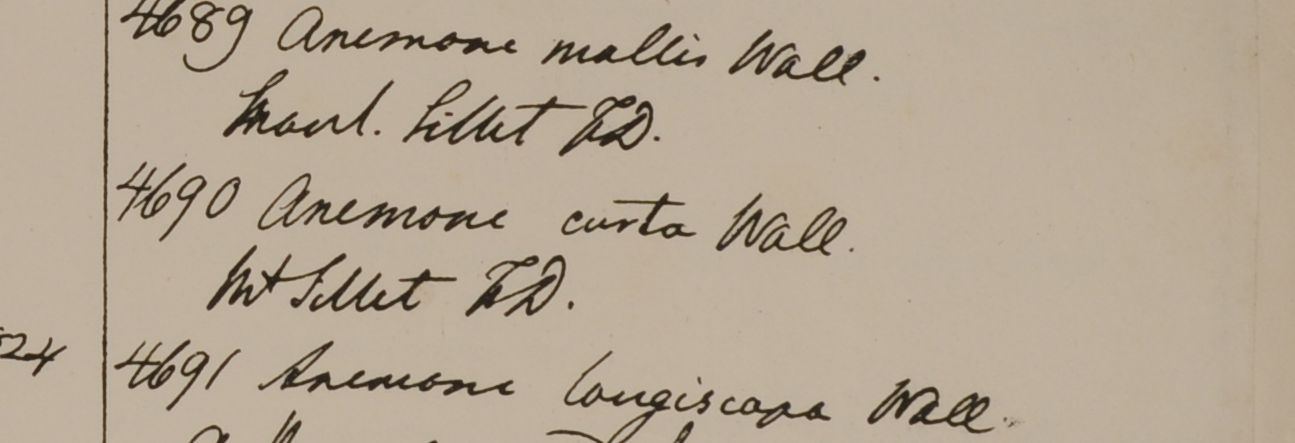 4689 Anemone mollis Wall.
Mont. Sillet F.D.
4690 Anemone curta Wall.
Mt Sillet F.D.
24 4691 Anemone longiscapa Wall.